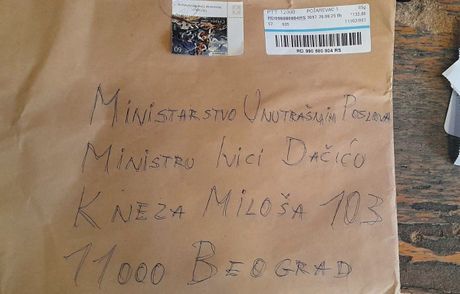 PTT 12000 POŽAREVAC 1
RE 990 980 804 RS
MINISTARSTVO UNUTRAŠNJIH POSLOVA
MINISTRU IVICI DAČIĆU
KNEZA MILOŠA 103
11000 BEOGRAD